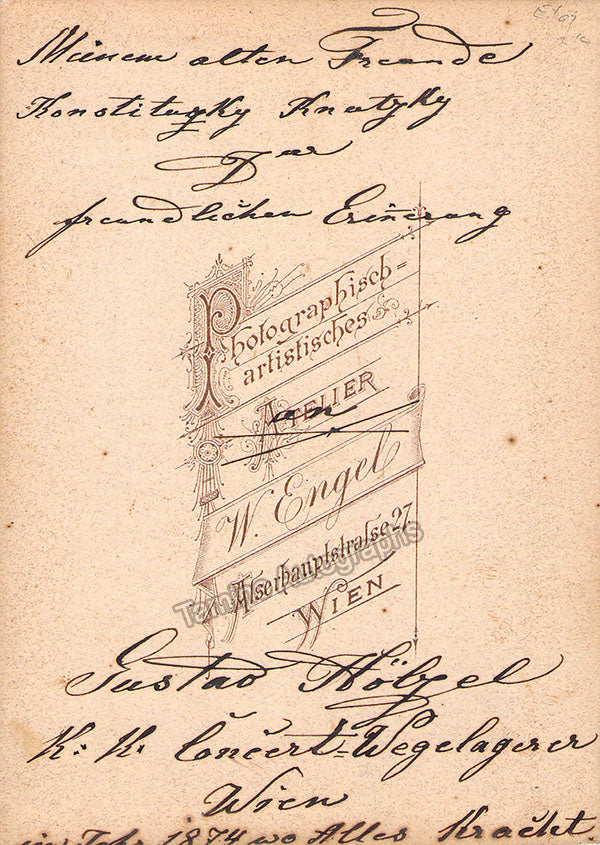 Meinem alten Freunde
Konstitutzky Knutzky
Zur
freundlichen Erinerung
Photographisch=
artistisches
Atelier
an
W. Engel
Alserhauptstraße 27
Wien
Tamino Autographs
Gustav Hölzel
K: K: Concert=Wegelagerer
Wien
im Jahr 1874 wo Alles Kracht.